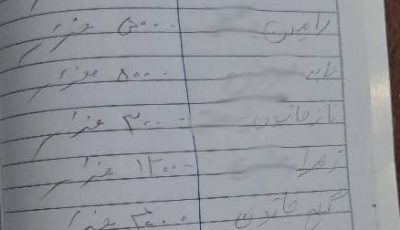 رامین ۵۰۰۰ هزار
۵۰۰۰ هزار
نازخاتون ۳۰۰۰ هزار
زهرا ۱۲۰۰ هزار
گل خاتون ۳۰۰۰ هزار